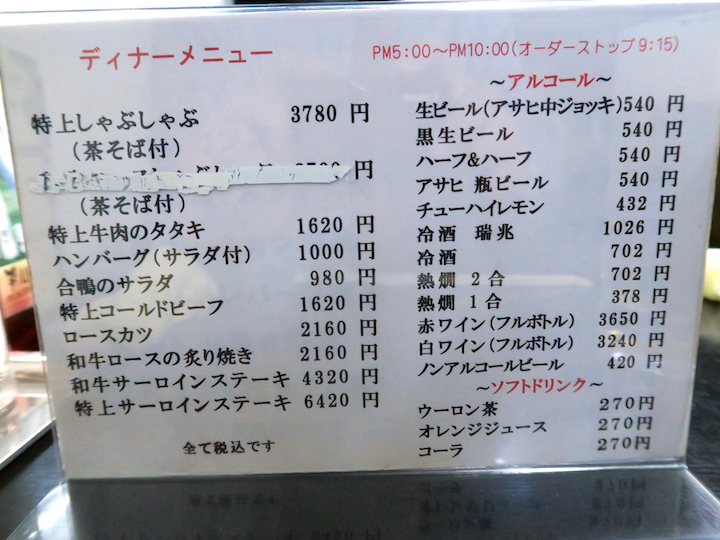 ディナーメニュー
PM5:00〜PM10:00(オーダーストップ9:15)
特上しゃぶしゃぶ 3780 円
(茶そば付)
円
(茶そば付)
特上牛肉のタタキ 1620 円
ハンバーグ(サラダ付) 1000 円
合鴨のサラダ 980 円
特上コールドビーフ 1620 円
ロースカツ 2160 円
和牛ロースの炙り焼き 2160 円
和牛サーロインステーキ 4320 円
特上サーロインステーキ 6420 円
全て税込です
〜アルコール〜
生ビール(アサヒ中ジョッキ) 540 円
黒生ビール 540 円
ハーフ&ハーフ 540 円
アサヒ 瓶ビール 540 円
チューハイレモン 432 円
冷酒 瑞兆 1026 円
冷酒 702 円
熱燗 2合 702 円
熱燗 1合 378 円
赤ワイン(フルボトル) 3650 円
白ワイン(フルボトル) 3240 円
ノンアルコールビール 420 円
〜ソフトドリンク〜
ウーロン茶 270円
オレンジジュース 270円
コーラ 270円